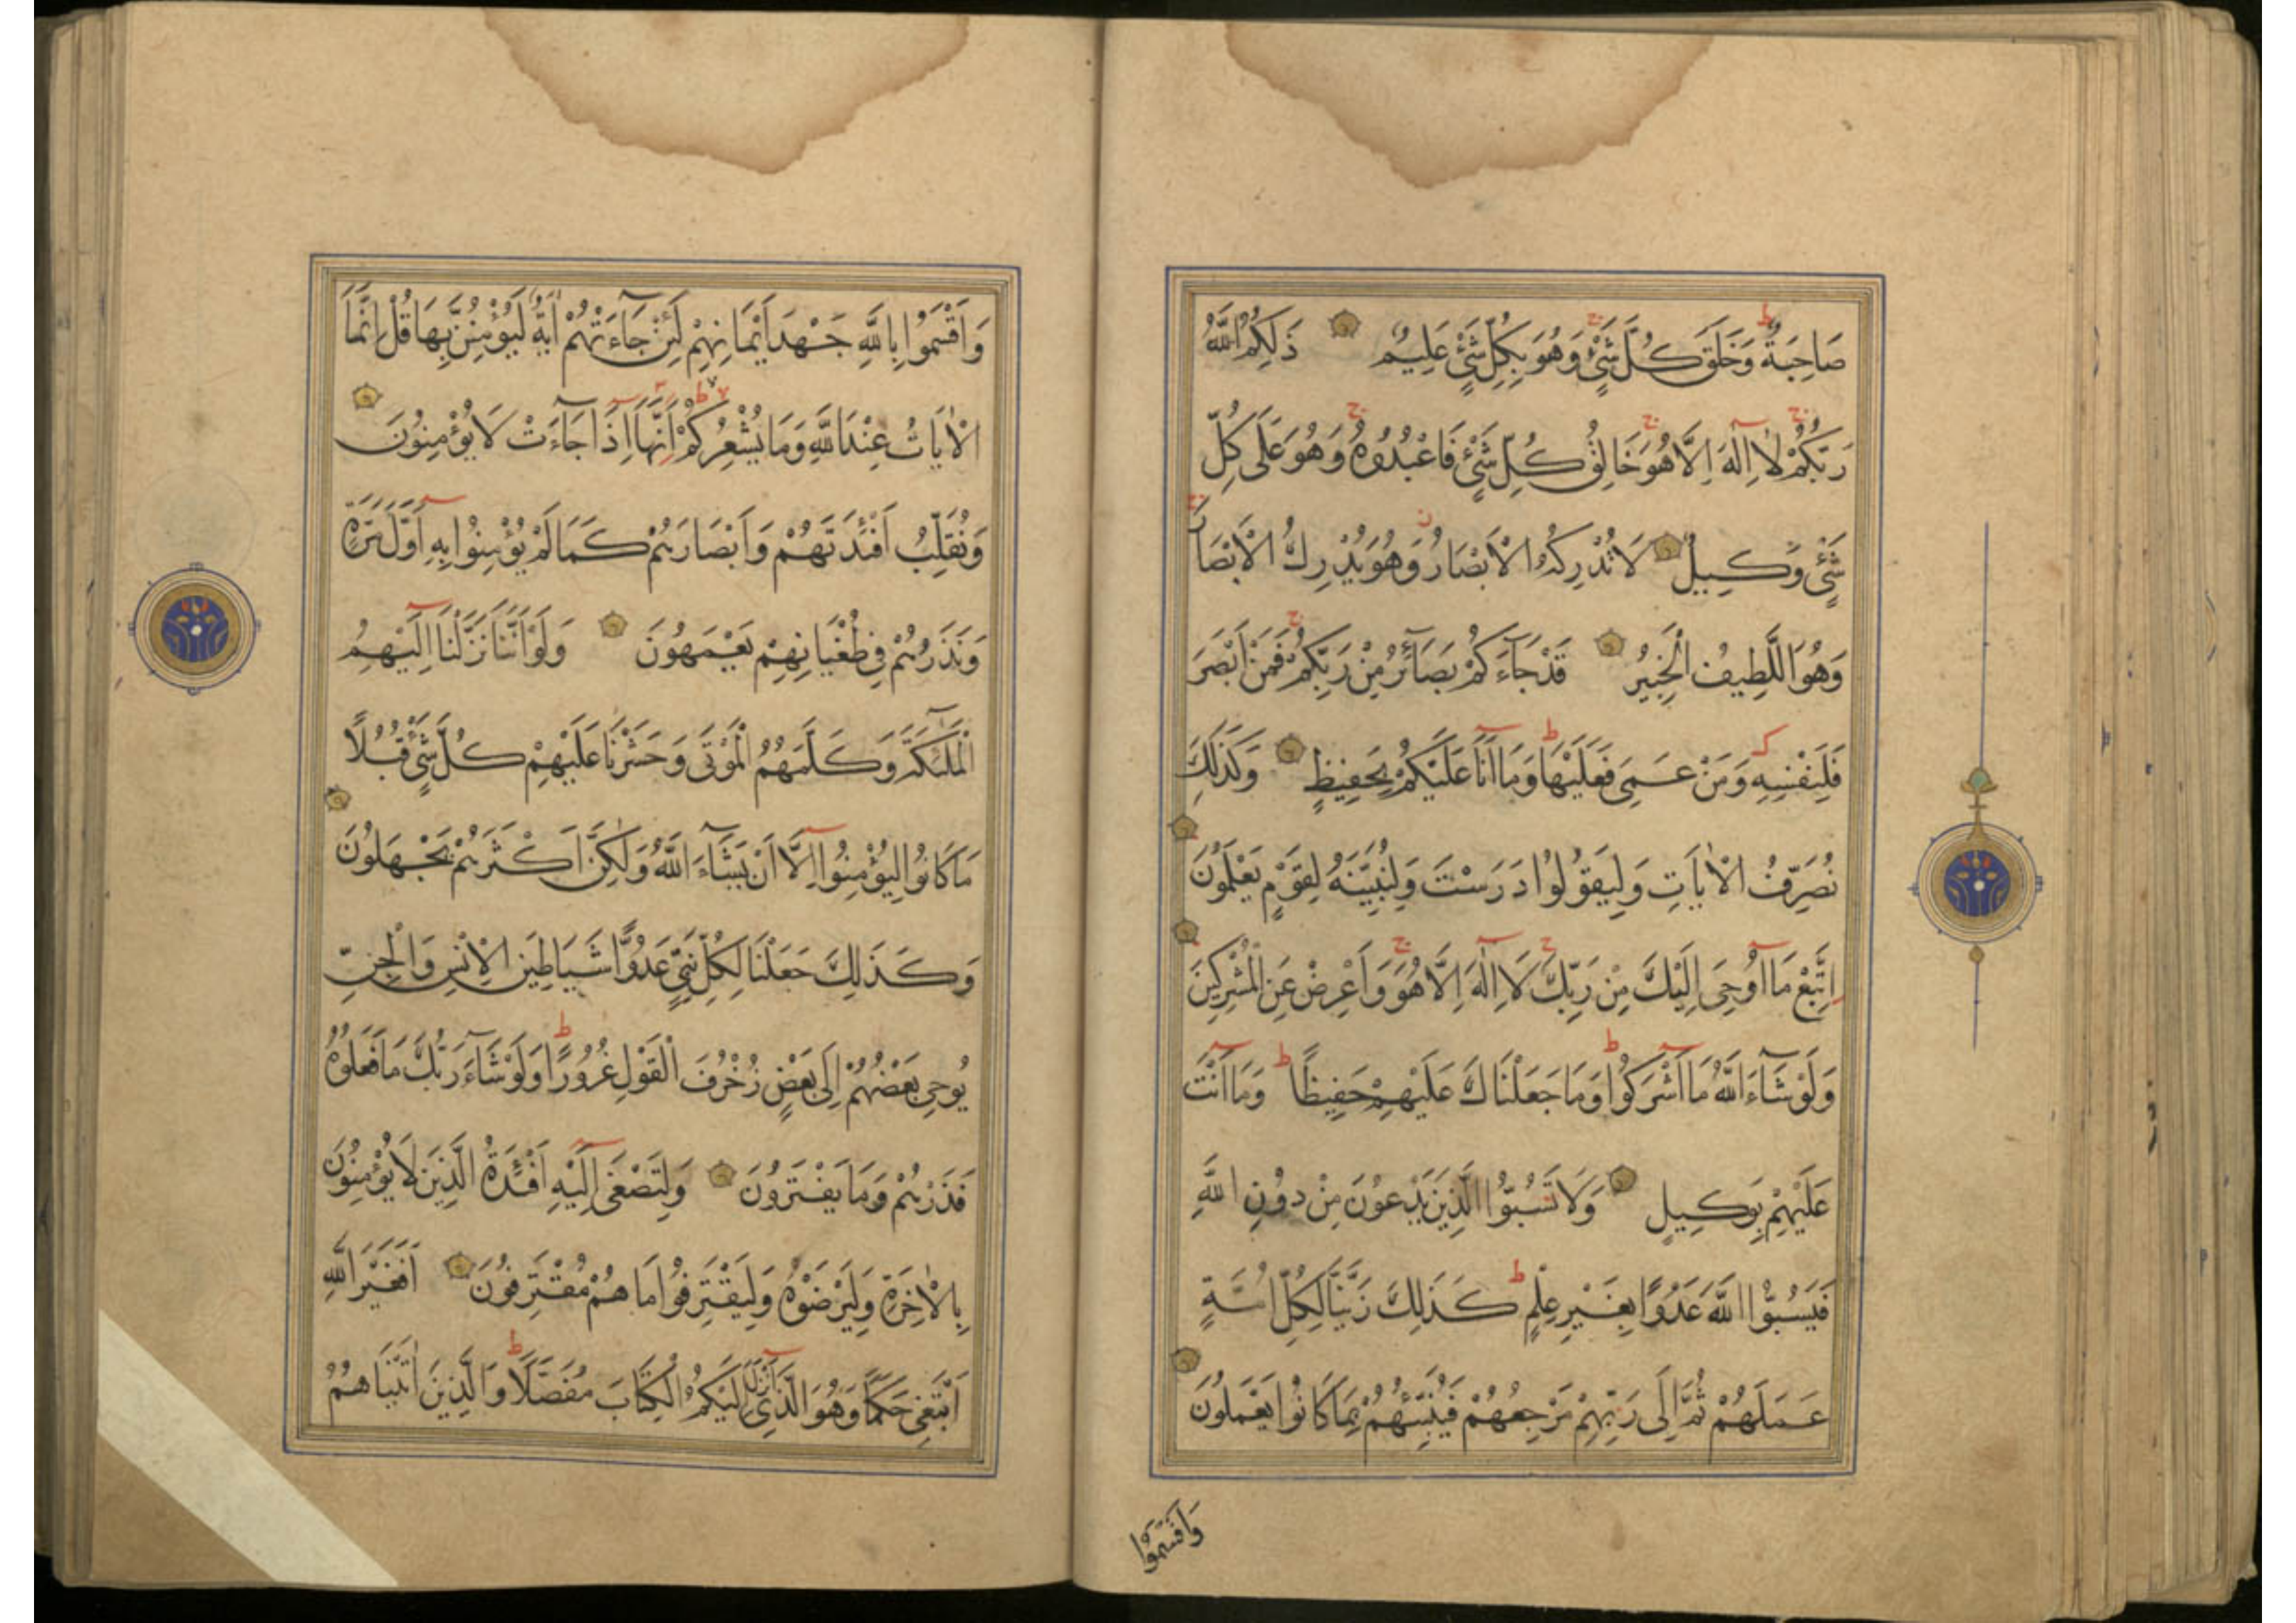 صَاحِبَةٌ وَخَلَقَ كُلَّ شَيْءٍ وَهُوَ بِكُلِّ شَيْءٍ عَلِيمٌ ذَلِكُمُ اللَّهُ
رَبُّكُمْ لَا اِلَهَ اِلَّا هُوَ خَالِقُ كُلِّ شَيْءٍ فَاعْبُدُوهُ وَهُوَ عَلَى كُلِّ
شَيْءٍ وَكِيلٌ لَا تُدْرِكُهُ الْاَبْصَارُ وَهُوَ يُدْرِكُ الْاَبْصَارَ
وَهُوَ اللَّطِيفُ الْخَبِيرُ قَدْ جَآءَكُمْ بَصَآئِرُ مِنْ رَبِّكُمْ فَمَنْ اَبْصَرَ
فَلِنَفْسِهِ وَمَنْ عَمِيَ فَعَلَيْهَا وَمَا اَنَا عَلَيْكُمْ بِحَفِيظٍ وَكَذَلِكَ
نُصَرِّفُ الْاٰيَاتِ وَلِيَقُولُوا دَرَسْتَ وَلِنُبَيِّنَهُ لِقَوْمٍ يَعْلَمُونَ
اِتَّبِعْ مَا اُوحِيَ اِلَيْكَ مِنْ رَبِّكَ لَا اِلٰهَ اِلَّا هُوَ وَاَعْرِضْ عَنِ الْمُشْرِكِينَ
وَلَوْ شَآءَ اللَّهُ مَا اَشْرَكُوا وَمَا جَعَلْنَاكَ عَلَيْهِمْ حَفِيظًا وَمَا اَنْتَ
عَلَيْهِمْ بِوَكِيلٍ وَلَا تَسُبُّوا الَّذِينَ يَدْعُونَ مِنْ دُونِ اللَّهِ
فَيَسُبُّوا اللَّهَ عَدْوًا بِغَيْرِ عِلْمٍ كَذَلِكَ زَيَّنَّا لِكُلِّ اُمَّةٍ
عَمَلَهُمْ ثُمَّ اِلَى رَبِّهِمْ مَرْجِعُهُمْ فَيُنَبِّئُهُمْ بِمَا كَانُوا يَعْمَلُونَ
وَاَقْسَمُوا
وَاَقْسَمُوا بِاللَّهِ جَهْدَ اَيْمَانِهِمْ لَئِنْ جَآءَتْهُمْ اٰيَةٌ لَيُؤْمِنُنَّ بِهَا قُلْ اِنَّمَا
الْاٰيَاتُ عِنْدَ اللَّهِ وَمَا يُشْعِرُكُمْ اَنَّهَا اِذَا جَآءَتْ لَا يُؤْمِنُونَ
وَنُقَلِّبُ اَفْئِدَتَهُمْ وَاَبْصَارَهُمْ كَمَا لَمْ يُؤْمِنُوا بِهِ اَوَّلَ مَرَّةٍ
وَنَذَرُهُمْ فِي طُغْيَانِهِمْ يَعْمَهُونَ وَلَوْ اَنَّنَا نَزَّلْنَا اِلَيْهِمُ
الْمَلٰٓئِكَةَ وَكَلَّمَهُمُ الْمَوْتَى وَحَشَرْنَا عَلَيْهِمْ كُلَّ شَيْءٍ قُبُلًا
مَا كَانُوا لِيُؤْمِنُوا اِلَّا اَنْ يَشَآءَ اللَّهُ وَلٰكِنَّ اَكْثَرَهُمْ يَجْهَلُونَ
وَكَذَلِكَ جَعَلْنَا لِكُلِّ نَبِيٍّ عَدُوًّا شَيَاطِينَ الْاِنْسِ وَالْجِنِّ
يُوحِي بَعْضُهُمْ اِلَى بَعْضٍ زُخْرُفَ الْقَوْلِ غُرُورًا وَلَوْ شَآءَ رَبُّكَ مَا فَعَلُوهُ
فَذَرْهُمْ وَمَا يَفْتَرُونَ وَلِتَصْغَى اِلَيْهِ اَفْئِدَةُ الَّذِينَ لَا يُؤْمِنُونَ
بِالْاٰخِرَةِ وَلِيَرْضَوْهُ وَلِيَقْتَرِفُوا مَا هُمْ مُقْتَرِفُونَ اَفَغَيْرَ اللَّهِ
اَبْتَغِي حَكَمًا وَهُوَ الَّذِي اَنْزَلَ اِلَيْكُمُ الْكِتَابَ مُفَصَّلًا وَالَّذِينَ اٰتَيْنَاهُمُ